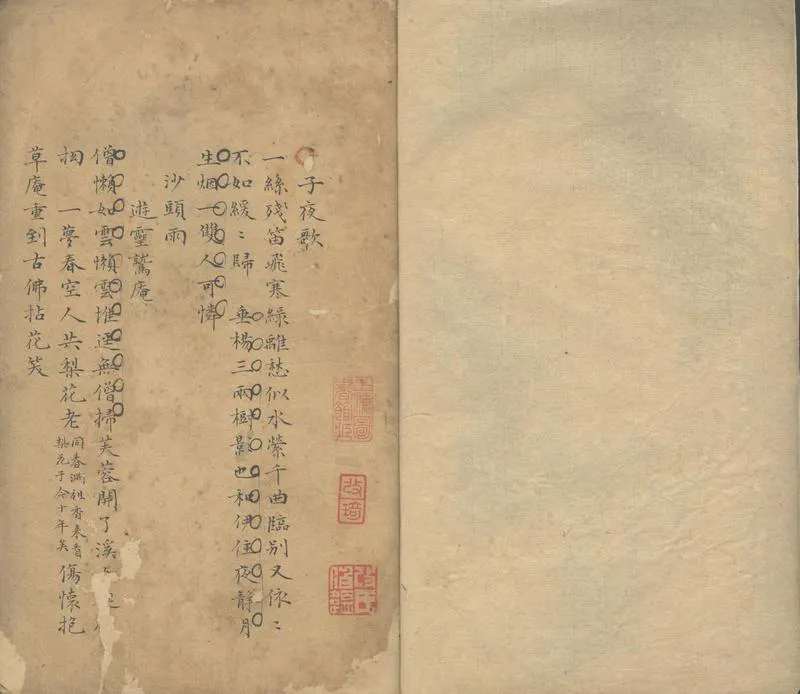 子夜歌
一絲殘笛飛寒綠離愁似水縈千曲臨別又依〻
不如緩〻歸　垂楊三兩樹影也和伊住夜靜月
生烟一雙人可憐
沙頭雨
遊靈鷲庵
僧懶如雲懶雲堆逕無僧掃芙蓉開了溪
一夢春空人共梨花老
同春祖香來看
桃花于今十年矣
傷懷抱
草庵重到古佛拈花笑
上海圖書館藏
改琦
改氏